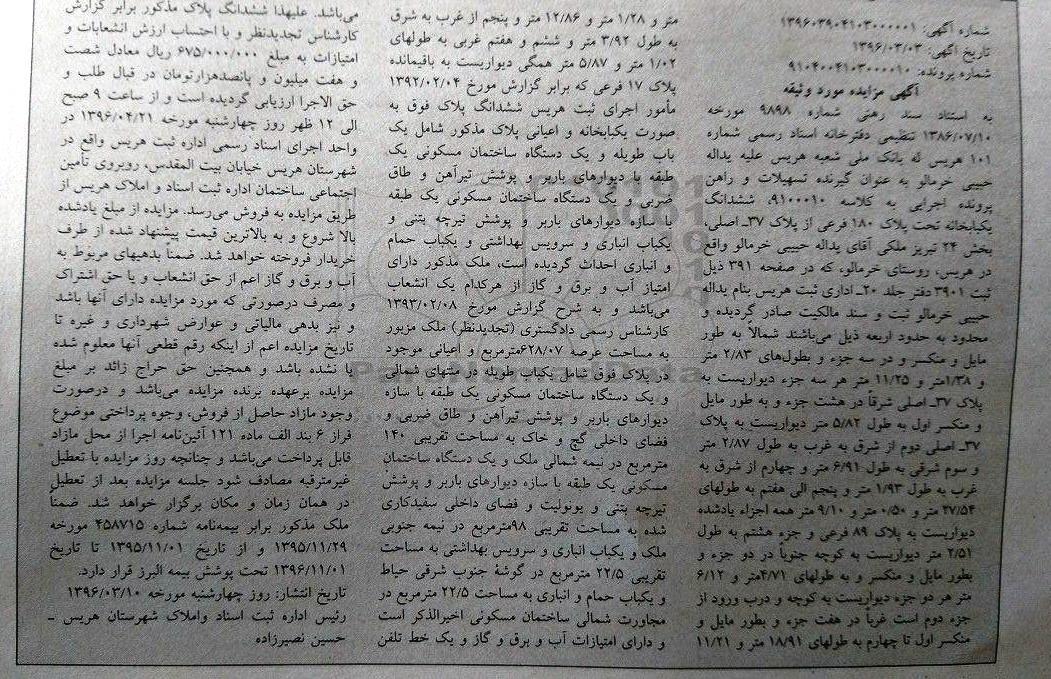 شماره آگهی: ۱۳۹۶۰۳۹۰۴۱۰۳۰۰۰۰۰۱
تاریخ آگهی: ۱۳۹۶/۰۳/۰۳
شماره پرونده: ۹۱۰۴۰۰۴۱۰۳۰۰۰۰۱۰
آگهی مزایده مورد وثیقه
به استناد سند رهنی شماره ۹۸۹۸ مورخه
۱۳۸۶/۰۷/۱۰ تنظیمی دفترخانه اسناد رسمی شماره
۱۰۱ هریس له بانک ملی شعبه هریس علیه یداله
حبیبی خرمالو به عنوان گیرنده تسهیلات و راهن
پرونده اجرایی به کلاسه ۹۱۰۰۰۱۰، ششدانگ
یکبابخانه تحت پلاک ۱۸۰ فرعی از پلاک ۳۷ـ اصلی،
بخش ۲۴ تبریز ملکی آقای یداله حبیبی خرمالو واقع
در هریس، روستای خرمالو، که در صفحه ۳۹۱ ذیل
ثبت ۳۹۰۱ دفتر جلد ۲۰ـ اداری ثبت هریس بنام یداله
حبیبی خرمالو ثبت و سند مالکیت صادر گردیده و
محدود به حدود اربعه ذیل می‌باشند شمالاً به طور
مایل و منکسر و در سه جزء و بطول‌های ۲/۸۳ متر
و ۱/۳۸متر و ۱۱/۲۵ متر هر سه جزء دیواریست به
پلاک ۳۷ـ اصلی شرقاً در هشت جزء و به طور مایل
و منکسر اول به طول ۵/۸۲ متر دیواریست به پلاک
۳۷ـ اصلی دوم از شرق به غرب به طول ۲/۸۷ متر
و سوم شرقی به طول ۶/۹۱ متر و چهارم از شرق به
غرب به طول ۱/۹۳ متر و پنجم الی هفتم به طولهای
۲۷/۵۴ متر و ۰/۵۰ متر و ۹/۱۰ متر همه اجزاء یادشده
دیواریست به پلاک ۸۹ فرعی و جزء هشتم به طول
۲/۵۱ متر دیواریست به کوچه جنوباً در دو جزء و
بطور مایل و منکسر و به طولهای ۴/۷۱متر و ۶/۱۲
متر هر دو جزء دیواریست به کوچه و درب ورود از
جزء دوم است غرباً در هفت جزء و بطور مایل و
منکسر اول تا چهارم به طولهای ۱۸/۹۱ متر و ۱۱/۲۱
متر و ۱/۲۸ متر و ۱۲/۸۶ متر و پنجم از غرب به شرق
به طول ۳/۹۲ متر و ششم و هفتم غربی به طولهای
۱/۰۲ متر و ۵/۸۷ متر همگی دیواریست به باقیمانده
پلاک ۱۷ فرعی که برابر گزارش مورخ ۱۳۹۲/۰۲/۰۴
مأمور اجرای ثبت هریس ششدانگ پلاک فوق به
صورت یکبابخانه و اعیانی پلاک مذکور شامل یک
باب طویله و یک دستگاه ساختمان مسکونی یک
طبقه با دیوارهای باربر و پوشش تیرآهن و طاق
ضربی و یک دستگاه ساختمان مسکونی یک طبقه
با سازه دیوارهای باربر و پوشش تیرچه بتنی و
یکباب انباری و سرویس بهداشتی و یکباب حمام
و انباری احداث گردیده است، ملک مذکور دارای
امتیاز آب و برق و گاز از هرکدام یک انشعاب
می‌باشد و به شرح گزارش مورخ ۱۳۹۳/۰۲/۰۸
کارشناس رسمی دادگستری (تجدیدنظر) ملک مزبور
به مساحت عرصه ۶۲۸/۰۷مترمربع و اعیانی موجود
در پلاک فوق شامل یکباب طویله در منتهای شمالی
و یک دستگاه ساختمان مسکونی یک طبقه با سازه
دیوارهای باربر و پوشش تیرآهن و طاق ضربی و
فضای داخلی گچ و خاک به مساحت تقریبی ۱۴۰
مترمربع در نیمه شمالی ملک و یک دستگاه ساختمان
مسکونی یک طبقه با سازه دیوارهای باربر و پوشش
تیرچه بتنی و یونولیت و فضای داخلی سفیدکاری
شده به مساحت تقریبی ۹۸مترمربع در نیمه جنوبی
ملک و یکباب انباری و سرویس بهداشتی به مساحت
تقریبی ۲۲/۵ مترمربع در گوشهٔ جنوب شرقی حیاط
و یکباب حمام و انباری به مساحت ۲۲/۵ مترمربع در
مجاورت شمالی ساختمان مسکونی اخیرالذکر است
و دارای امتیازات آب و برق و گاز و یک خط تلفن
می‌باشد. علیهذا ششدانگ پلاک مذکور برابر گزارش
کارشناس تجدیدنظر و با احتساب ارزش انشعابات و
امتیازات به مبلغ ۶۷۵/۰۰۰/۰۰۰ ریال معادل شصت
و هفت میلیون و پانصدهزارتومان در قبال طلب و
حق الاجرا ارزیابی گردیده است و از ساعت ۹ صبح
الی ۱۲ ظهر روز چهارشنبه مورخه ۱۳۹۶/۰۴/۲۱ در
واحد اجرای اسناد رسمی اداره ثبت هریس واقع در
شهرستان هریس خیابان بیت المقدس، روبروی تأمین
اجتماعی ساختمان اداره ثبت اسناد و املاک هریس از
طریق مزایده به فروش می‌رسد. مزایده از مبلغ یادشده
بالا شروع و به بالاترین قیمت پیشنهاد شده از طرف
خریدار فروخته خواهد شد. ضمناً بدهیهای مربوط به
آب و برق و گاز اعم از حق انشعاب و یا حق اشتراک
و مصرف درصورتی که مورد مزایده دارای آنها باشد
و نیز بدهی مالیاتی و عوارض شهرداری و غیره تا
تاریخ مزایده اعم از اینکه رقم قطعی آنها معلوم شده
یا نشده باشد و همچنین حق حراج زائد بر مبلغ
مزایده برعهده برنده مزایده می‌باشد و درصورت
وجود مازاد حاصل از فروش، وجوه پرداختی موضوع
فراز ۶ بند الف ماده ۱۲۱ آئین‌نامه اجرا از محل مازاد
قابل پرداخت می‌باشد و چنانچه روز مزایده با تعطیل
غیرمترقبه مصادف شود جلسه مزایده بعد از تعطیل
در همان زمان و مکان برگزار خواهد شد. ضمناً
ملک مذکور برابر بیمه‌نامه شماره ۴۵۸۷۱۵ مورخه
۱۳۹۵/۱۱/۲۹ و از تاریخ ۱۳۹۵/۱۱/۰۱ تا تاریخ
۱۳۹۶/۱۱/۰۱ تحت پوشش بیمه البرز قرار دارد.
تاریخ انتشار: روز چهارشنبه مورخه ۱۳۹۶/۰۳/۱۰
رئیس اداره ثبت اسناد واملاک شهرستان هریس ـ
حسین نصیرزاده